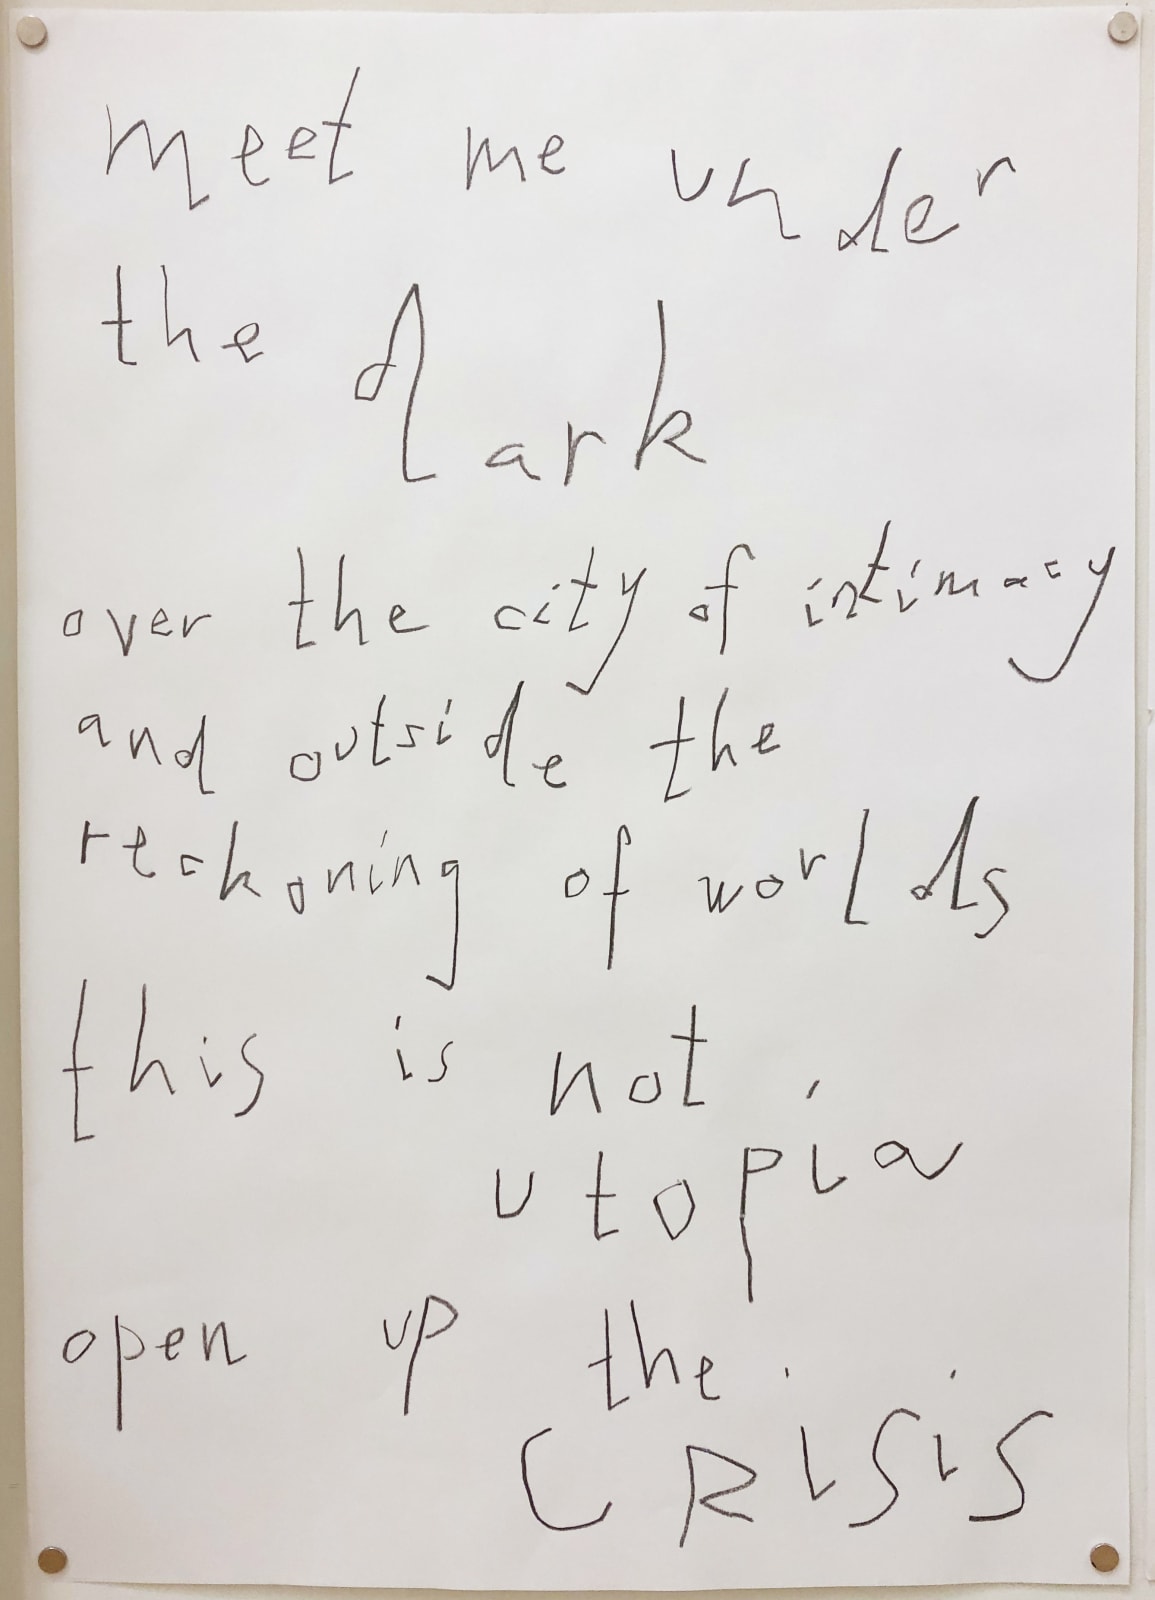 meet me under
the dark
over the city of intimacy
and outside the
reckoning of worlds
this is not
utopia
open up the
CRisis